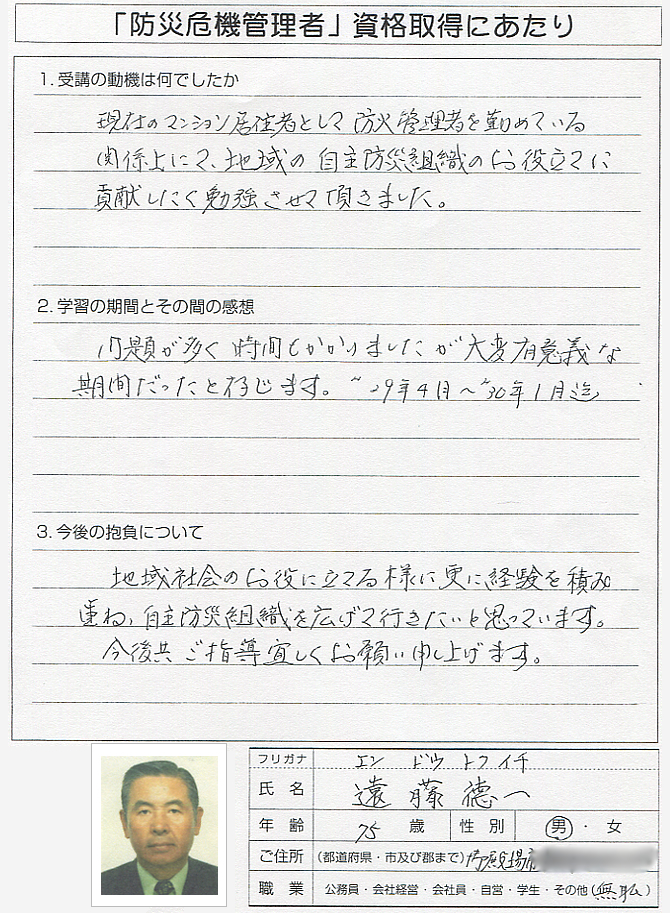 「防災危機管理者」資格取得にあたり
1. 受講の動機は何でしたか
現在のマンション居住者として防火管理者を勤めている
関係上にて、地域の自主防災組織のお役立てに
貢献したく勉強させて頂きました。
2. 学習の期間とその間の感想
問題が多く時間もかかりましたが大変有意義な
期間だったと存じます。〝29年4月〜〝30年1月迄
3. 今後の抱負について
地域社会のお役に立てる様に更に経験を積み
重ね、自主防災組織を広げて行きたいと思っています。
今後共ご指導宜しくお願い申し上げます。
フリガナ エン ドウ トクイチ
氏名 遠藤徳一
年齢 75 歳 性別 男・女
ご住所 (都道府県・市及び郡まで) 御殿場市
職業 公務員・会社経営・会社員・自営・学生・その他(無職)